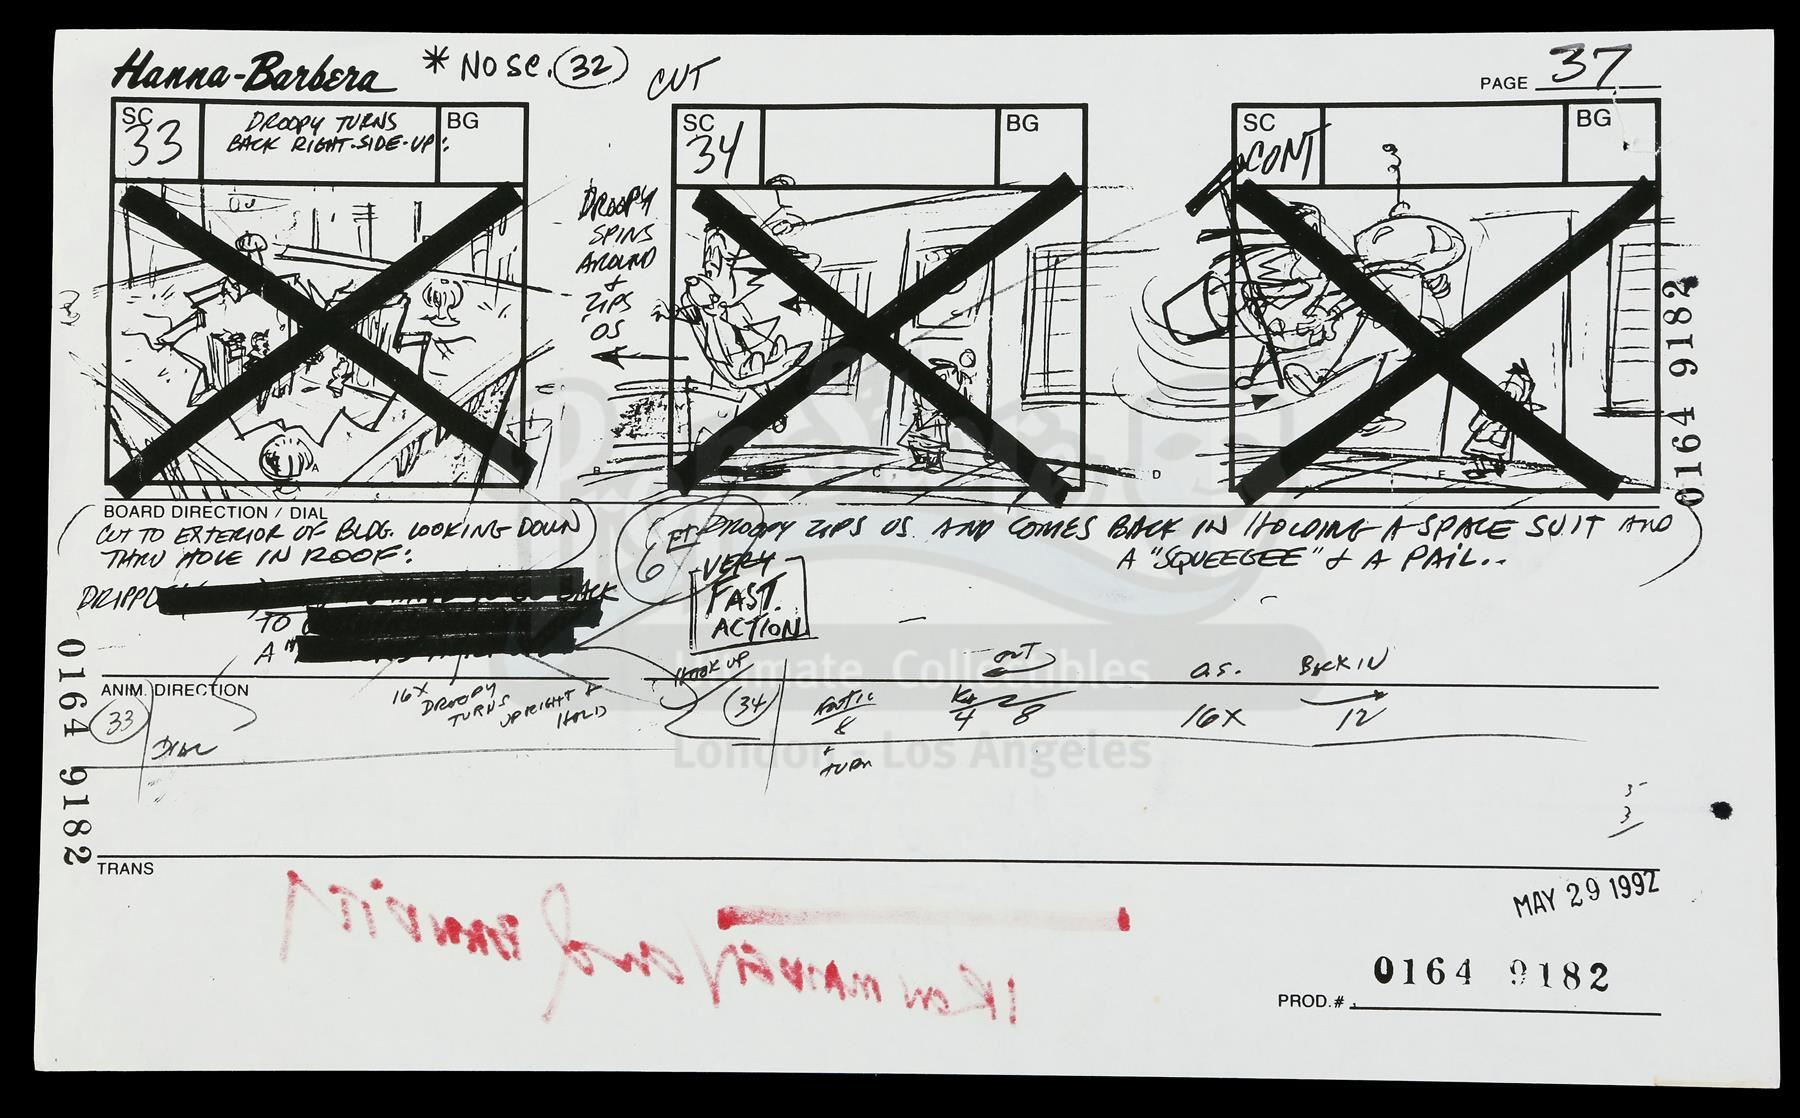 Hanna-Barbera
* NO SC. 32
CUT
PAGE 37
SC
33
DROOPY TURNS
BACK RIGHT-SIDE-UP:
BG
DROOPY
SPINS
AROUND
+
ZIPS
OS
SC
34
BG
SC
CONT
BG
A
B
C
D
E
0164 9182
BOARD DIRECTION / DIAL
CUT TO EXTERIOR OF BLDG. LOOKING DOWN
THRU HOLE IN ROOF:
BACK
TO
A
6 FT
DROOPY ZIPS OS. AND COMES BACK IN HOLDING A SPACE SUIT AND
A "SQUEEGEE" & A PAIL..
VERY
FAST
ACTION
Ultimate Collectibles
London - Los Angeles
HOOK UP
OUT
O.S.
BACK IN
ANIM. DIRECTION
33
DIAL
16X
DROOPY
TURNS
UPRIGHT &
HOLD
34
8
+
TURN
4
8
16X
12
5
3
0164 9182
TRANS
MAY 29 1992
0164 9182
PROD.#